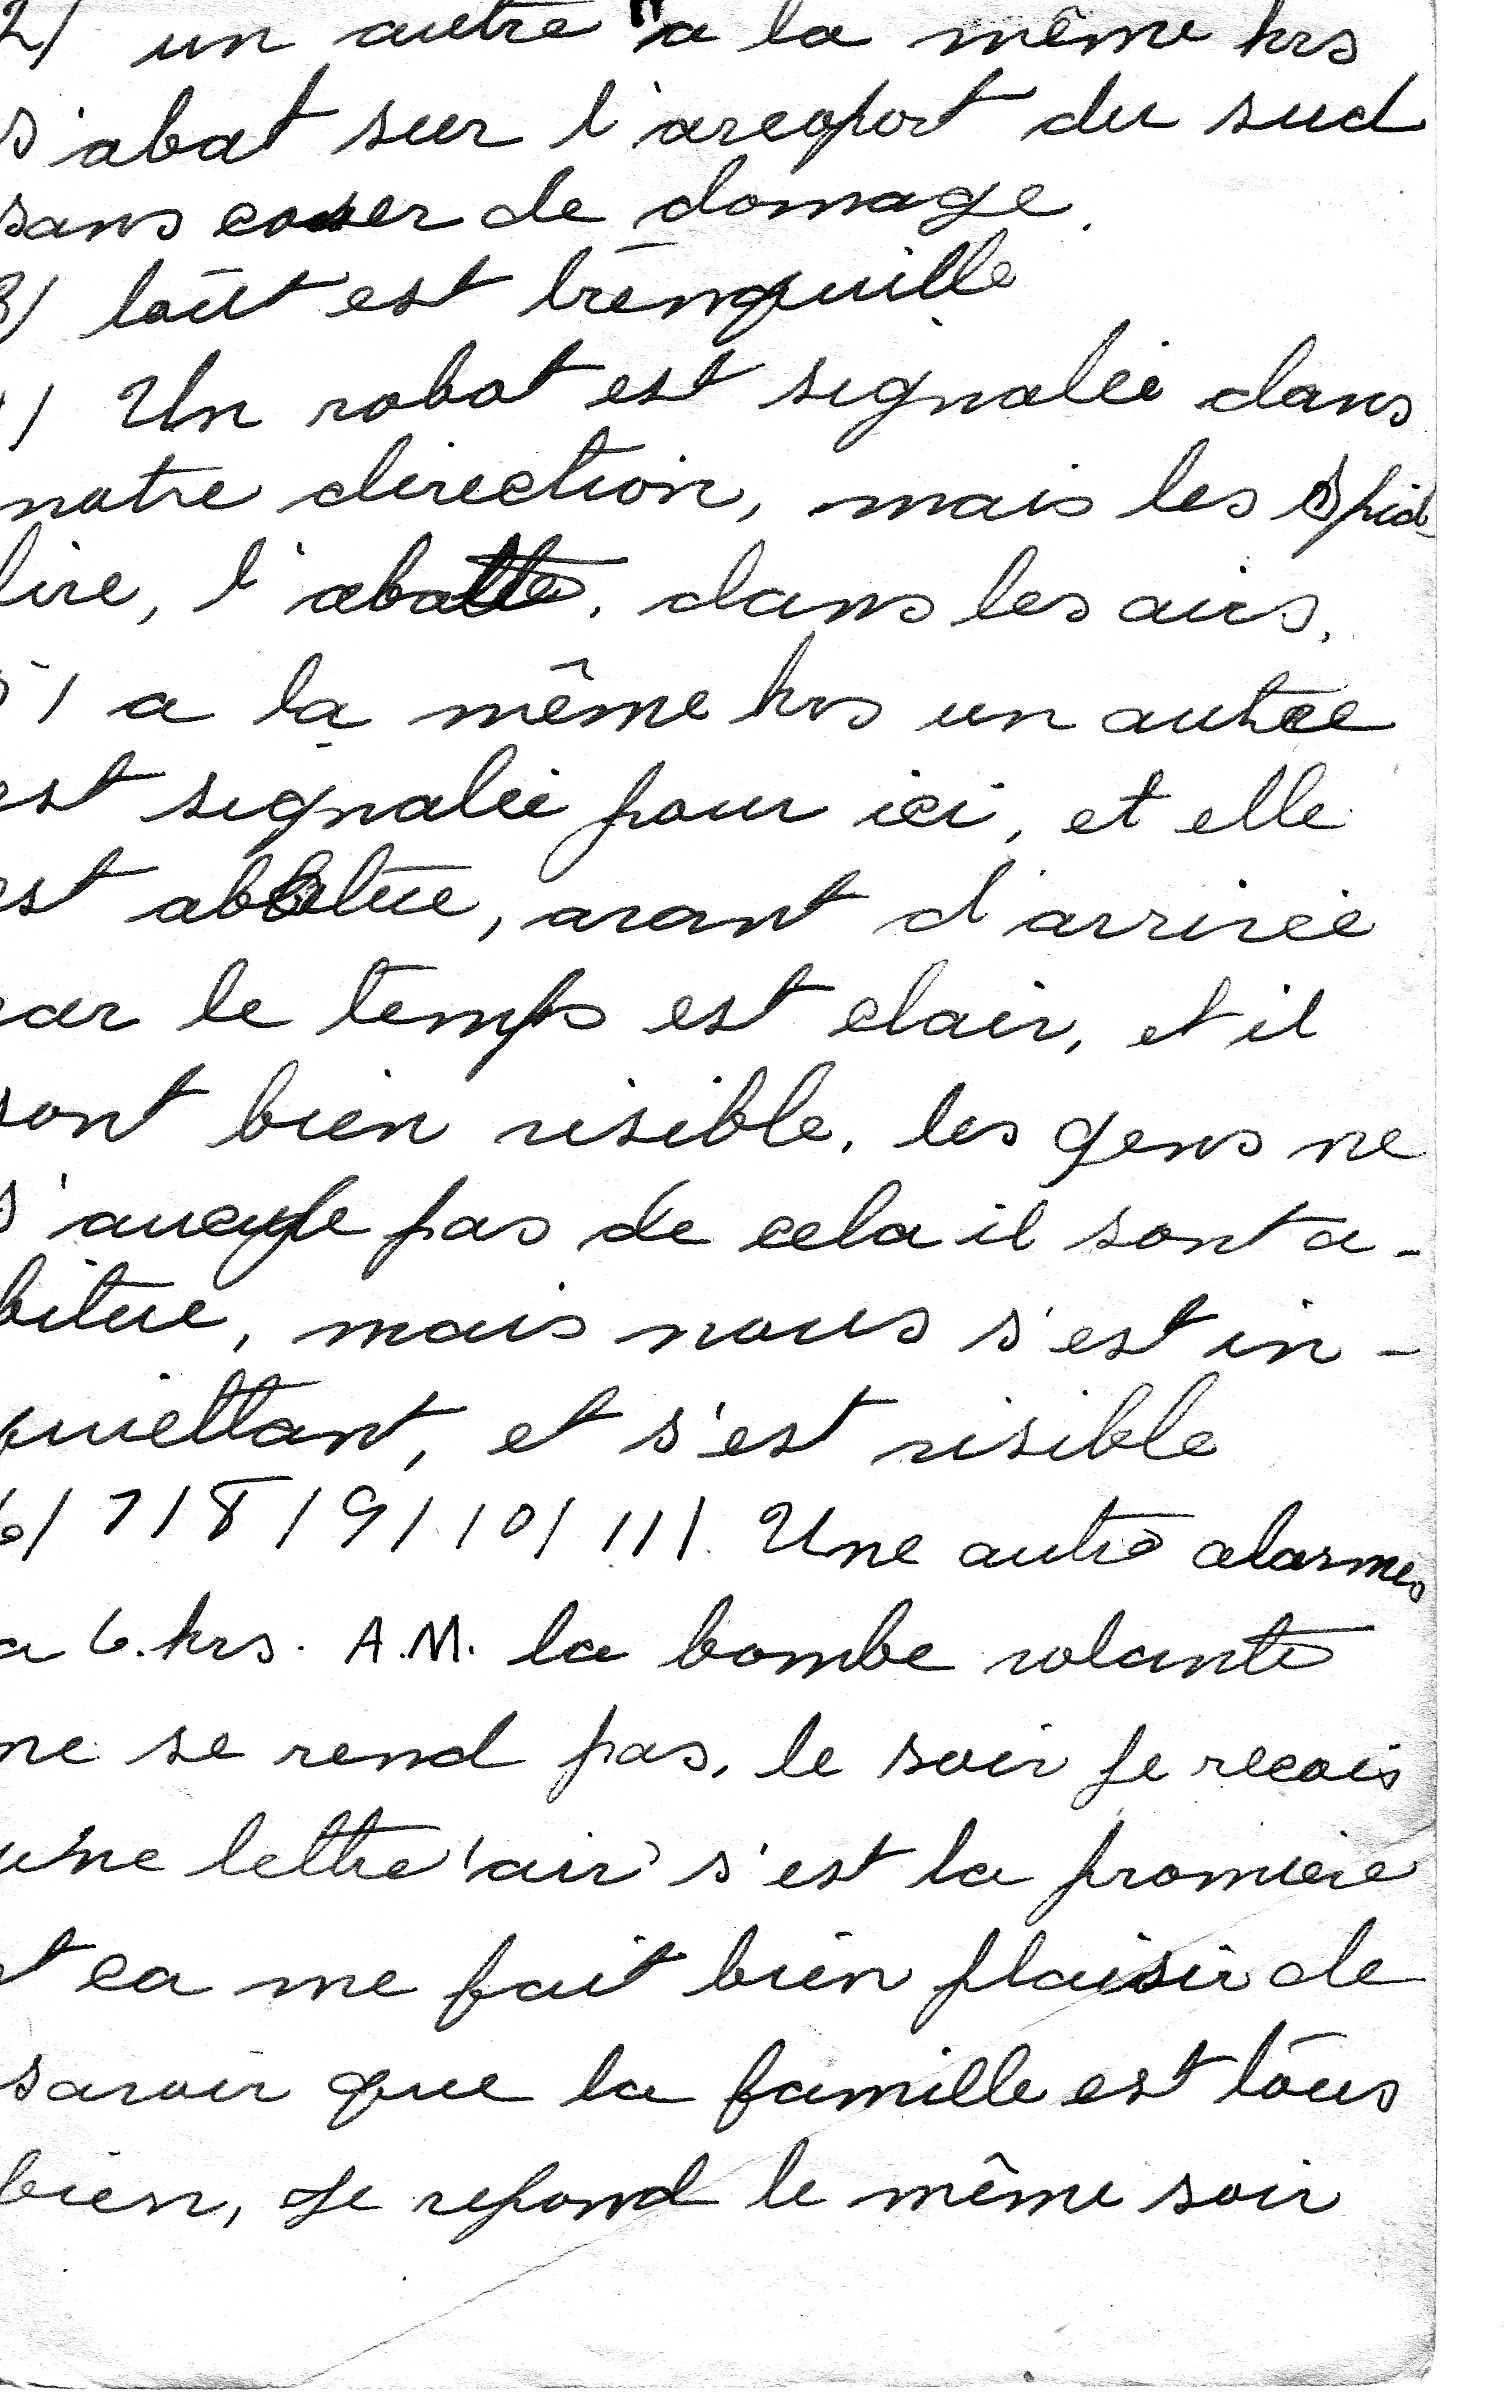 2/ un autre "a la même hrs
s'abat sur l'areoport du sud
sans couser de domage.
3/ tout est trènquille
/ Un robot est signalée dans
notre direction, mais les Spid-
fire, l'abatte, dans les airs.
5/ a la même hrs un autre
est signalée pour ici, et elle
est abatue, avant d'arrivée
car le temps est clair, et il
sont bien visible. les gens ne
s' pas de cela il sont a-
bitue, mais nous s'est in-
quiettant, et s'est visible
6/7/8/9/10/11/. Une autre alarmes
a 6.hrs. A.M. la bombe volante
ne se rend pas, le soir je recois
une lettre 'air' s'est la promiere
et ca me fait bien plaisir de
savoir que la famille est tous
bien, je repond le même soir